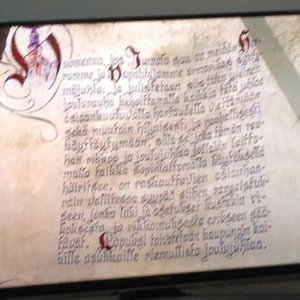 Huomenna, jos Jumala suo, on meidän Her-
ramme ja Vapahtajamme armorikas syntymä-
mäjuhla; ja julistetaan siis täten yleinen
joulurauha kehoittamalla kaikkia tätä juhlaa
asiaankuuluvalla hartaudella viettämään
sekä muutoin hiljaisesti ja rauhallisesti
käyttäytymään, sillä se, joka tämän rau-
han rikkoo ja joulujuhlaa jollakin laitto-
malla taikka sopimattomalla käytöksellä
häiritsee, on raskauttavien asianhaa-
rain vallitessa syypää siihen rangaistuk-
seen, jonka laki ja asetukset kustakin ri-
koksesta ja rikkomuksesta erikseen sää-
tävät. Lopuksi toivotetaan kaupungin kai-
kille asukkaille riemullista joulujuhlaa.